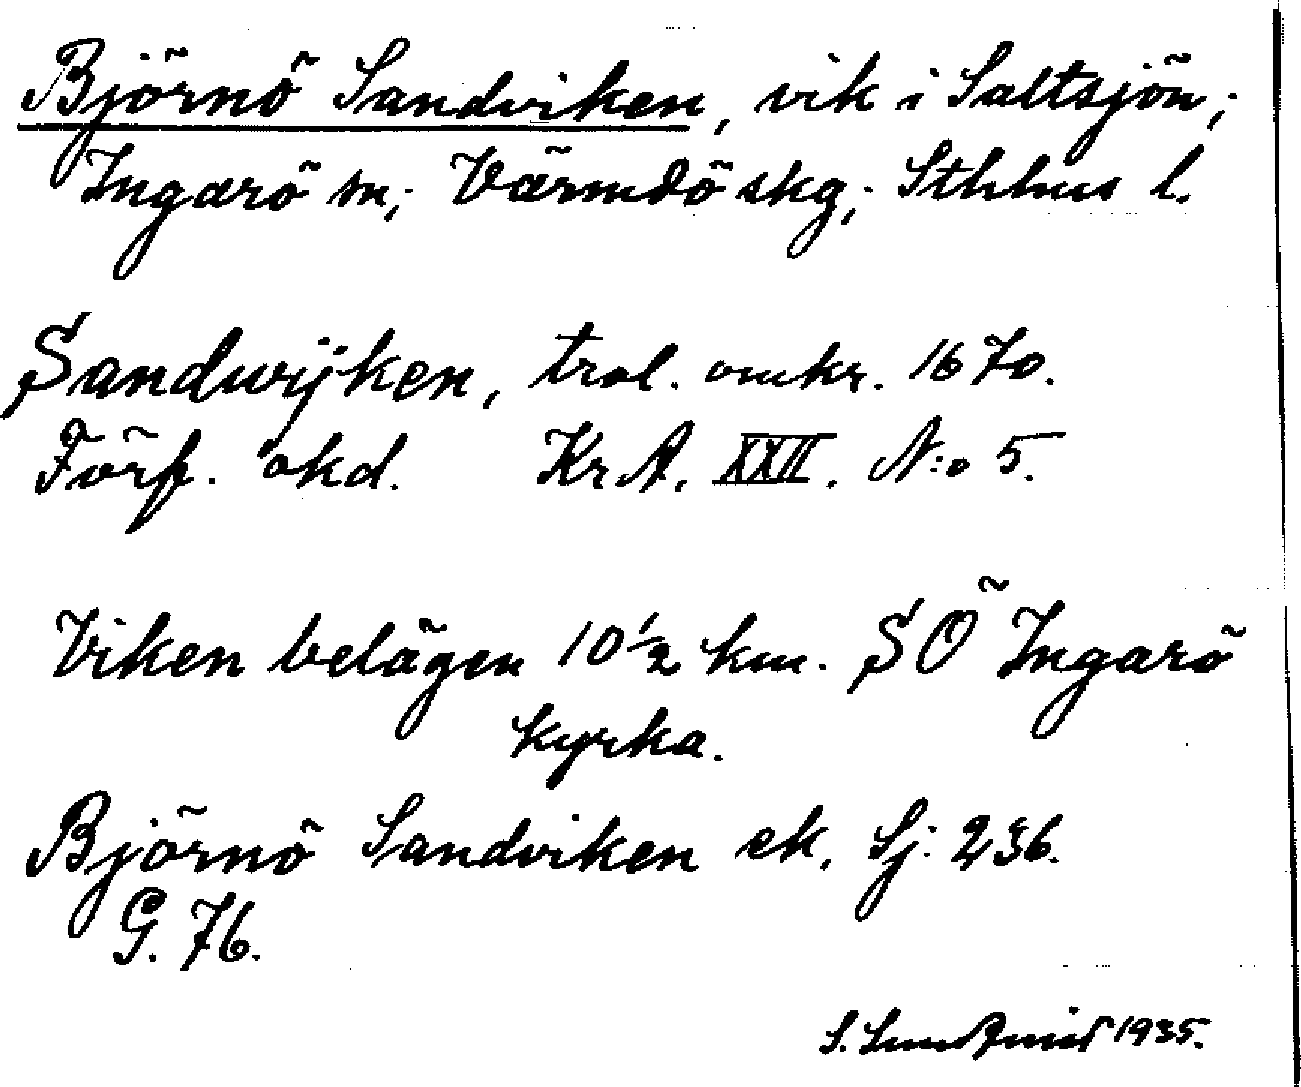 Björnö Sandviken, vik i Saltsjön;
Ingarö sn; Värmdö skg; Sthlms l.
Sandwijken, trol. omkr. 1670.
Förf. okd. Kr A. XXII. N:o 5.
Viken belägen 10 1/2 km. SÖ Ingarö
kyrka.
Björnö Sandviken ek. Sj: 236.
G. 76.
S. Sundquist 1935.